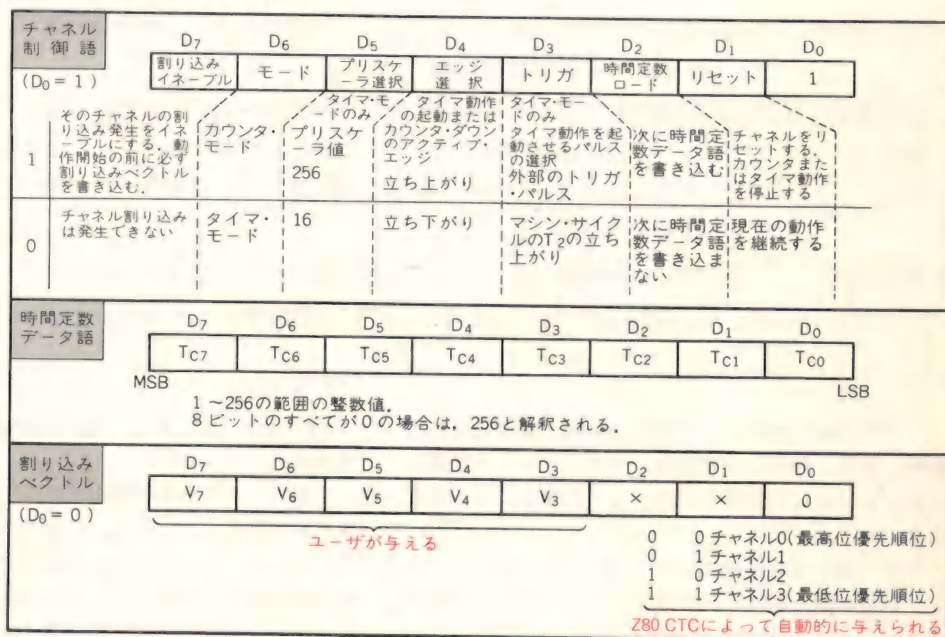 チャネル
制御語
(D0 = 1)
D7 D6 D5 D4 D3 D2 D1 D0
割り込み
イネーブル
モード
プリスケ
ーラ選択
エッジ
選択
トリガ
時間定数
ロード
リセット
1
1
そのチャネルの割
り込み発生をイネ
ーブルにする.動
作開始の前に必ず
割り込みベクトル
を書き込む.
カウンタ・
モード
タイマ・モ
ードのみ
プリスケ
ーラ値
256
タイマ動作
の起動または
カウンタ・ダウン
のアクティブ・
エッジ
立ち上がり
タイマ・モー
ドのみ
タイマ動作を起
動させるパルス
の選択
外部のトリガ
・パルス
次に時間定
数データ語
を書き込む
チャネルをリ
セットする.
カウンタまた
はタイマ動作
を停止する
0
チャネル割り込み
は発生できない
タイマ・
モード
16
立ち下がり
マシン・サイク
ルのT2の立ち
上がり
次に時間定
数データ語
を書き込ま
ない
現在の動作
を継続する
時間定数
データ語
D7 D6 D5 D4 D3 D2 D1 D0
TC7 TC6 TC5 TC4 TC3 TC2 TC1 TC0
MSB LSB
1～256の範囲の整数値.
8ビットのすべてが0の場合は,256と解釈される.
割り込み
ベクトル
(D0 = 0)
D7 D6 D5 D4 D3 D2 D1 D0
V7 V6 V5 V4 V3 × × 0
ユーザが与える
0 0 チャネル0(最高位優先順位)
0 1 チャネル1
1 0 チャネル2
1 1 チャネル3(最低位優先順位)
Z80 CTCによって自動的に与えられる